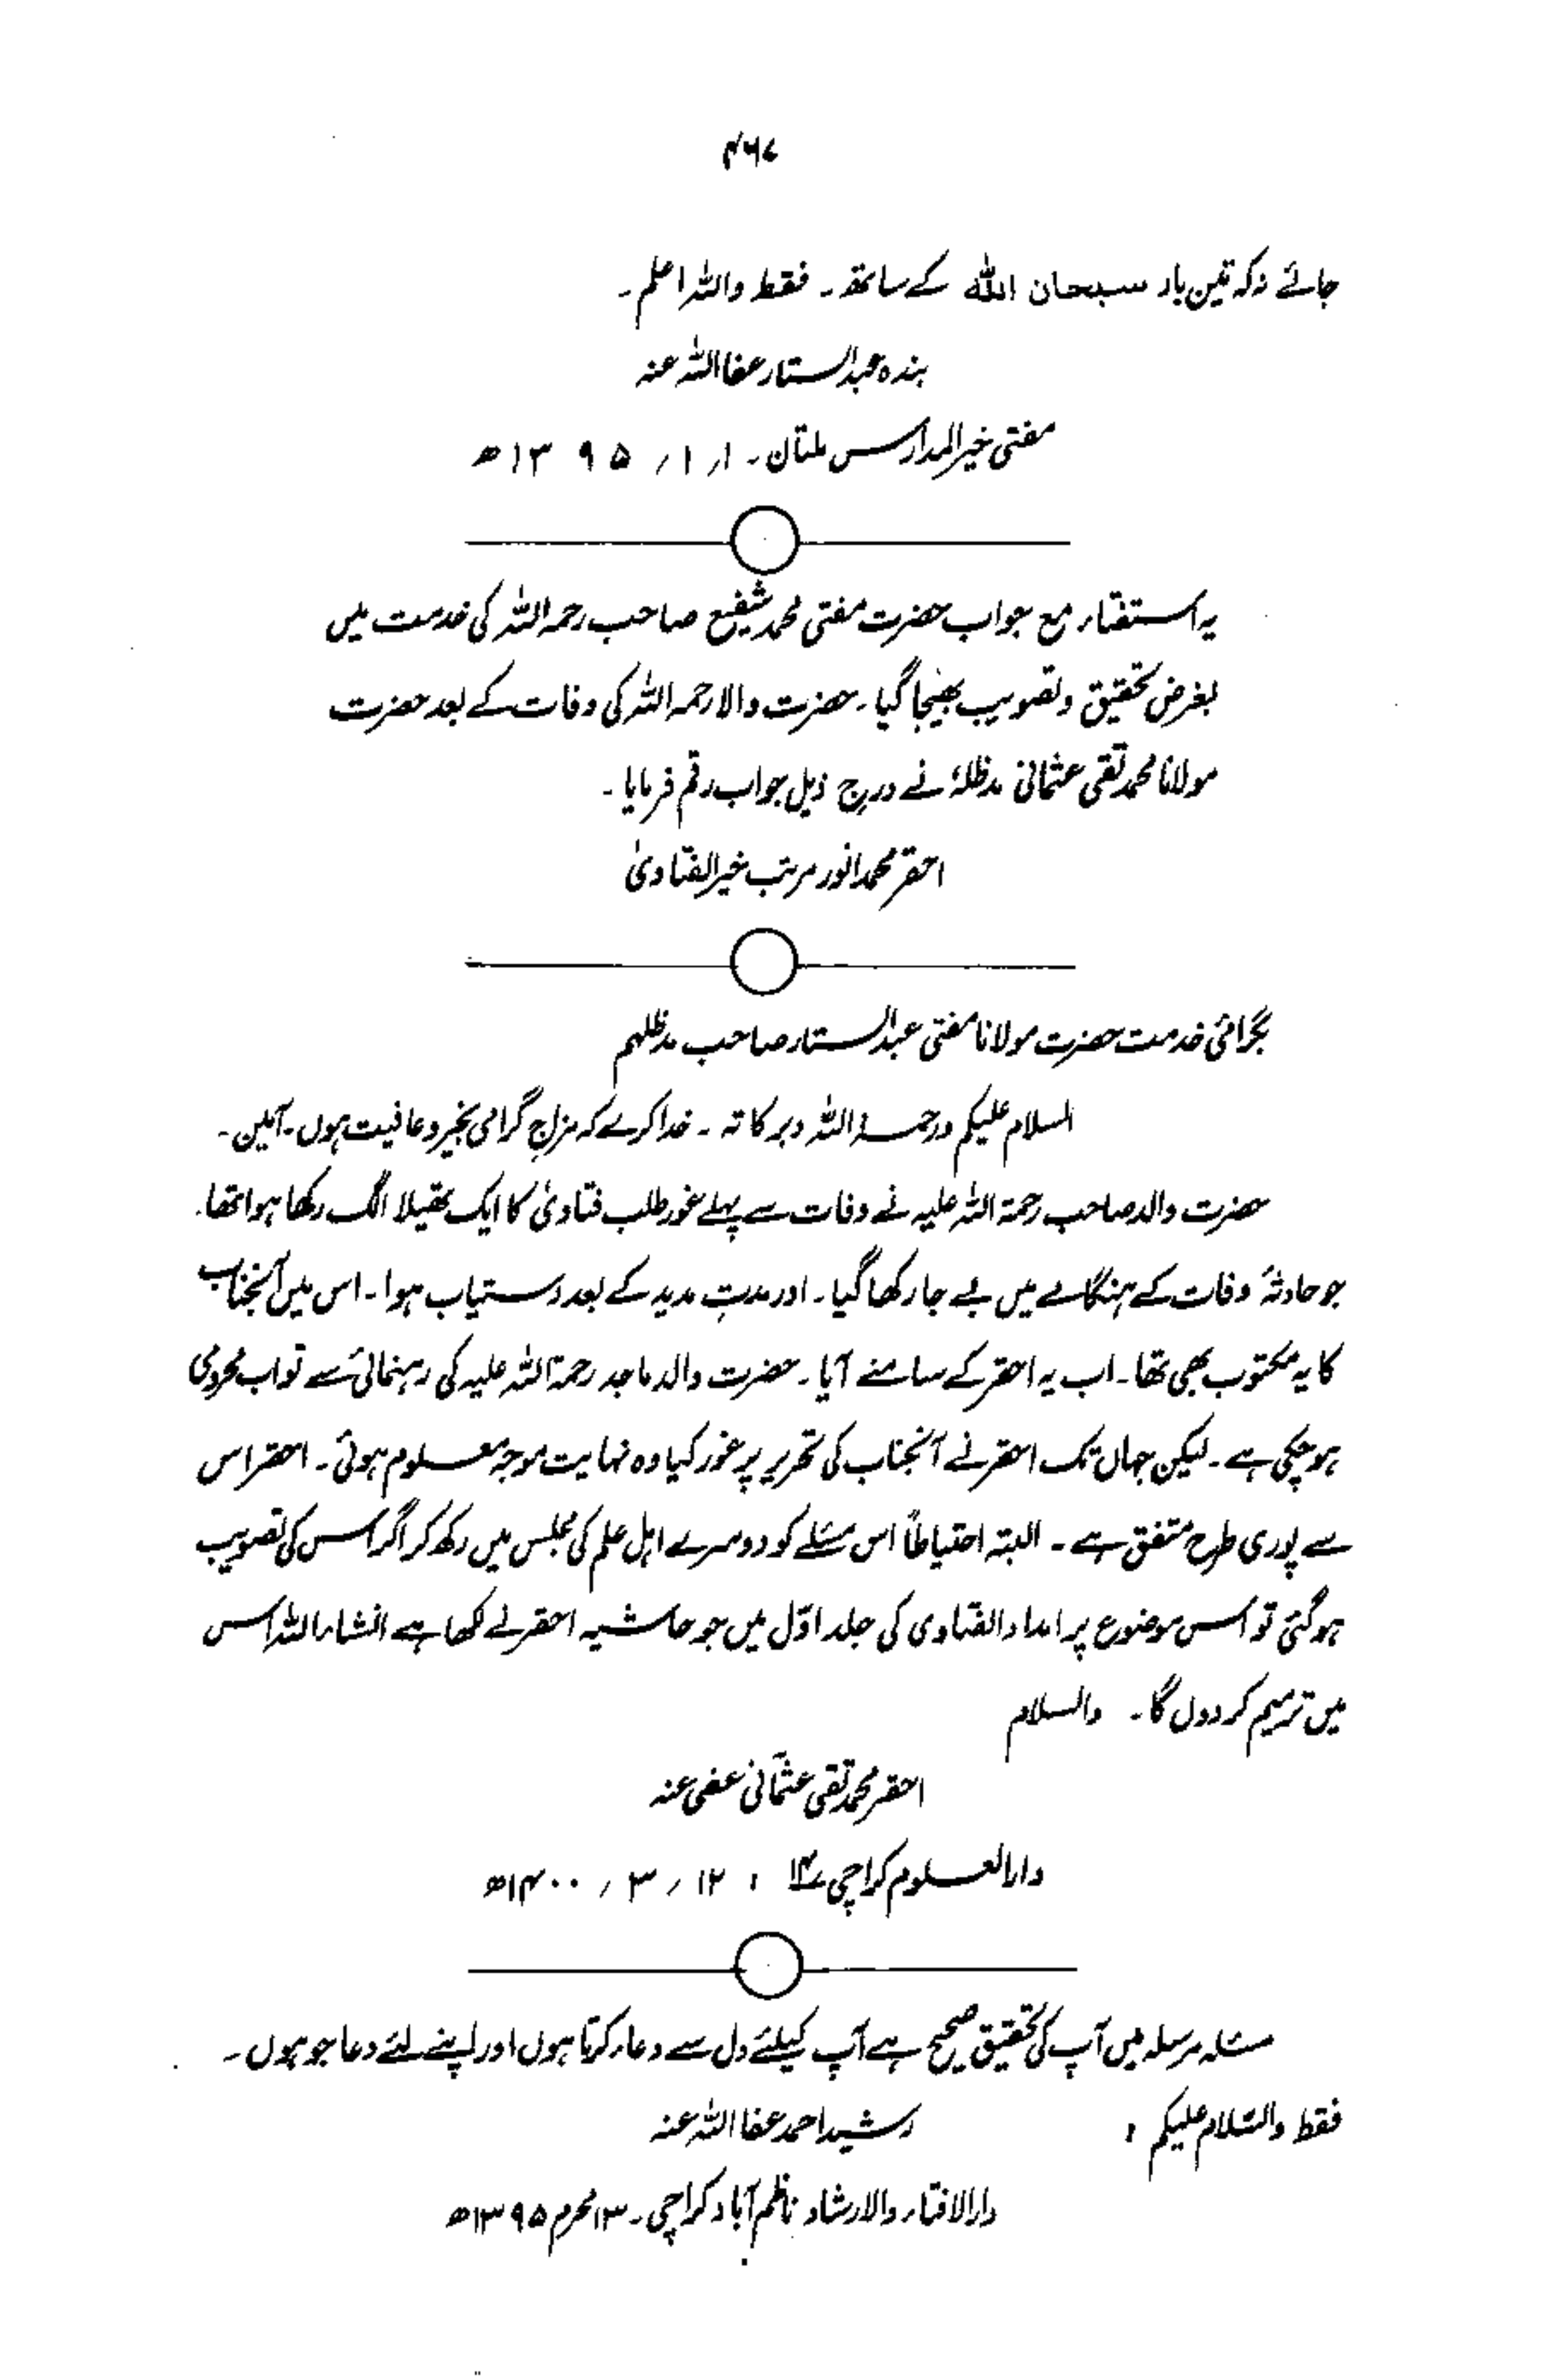 ۴۶۷
جائے نہ کہ تین بار سبحان اللہ کے ساتھ۔ فقط واللہ اعلم۔
بندہ عبدالستار عفا اللہ عنہ
مفتی خیر المدارس ملتان۔ ۱/ ۱/ ۱۳۹۵ھ
یہ استفتاء مع جواب حضرت مفتی محمد شفیع صاحب رحمہ اللہ کی خدمت میں
بغرض تحقیق و تصویب بھیجا گیا۔ حضرت والا رحمہ اللہ کی وفات کے بعد حضرت
مولانا محمد تقی عثمانی مدظلہٗ نے درج ذیل جواب رقم فرمایا۔
احقر محمد انور مرتب خیر الفتاویٰ
بگرامئ خدمت حضرت مولانا مفتی عبدالستار صاحب مدظلہم
السلام علیکم ورحمۃ اللہ وبرکاتہ۔ خدا کرے کہ مزاجِ گرامی بخیر و عافیت ہوں۔ آمین۔
حضرت والد صاحب رحمۃ اللہ علیہ نے وفات سے پہلے غور طلب فتاویٰ کا ایک تھیلا الگ رکھا ہوا تھا۔
جو حادثۂ وفات کے ہنگامے میں بے جا رکھا گیا۔ اور مدتِ مدید کے بعد دستیاب ہوا۔ اس میں آنجناب
کا یہ مکتوب بھی تھا۔ اب یہ احقر کے سامنے آیا۔ حضرت والد ماجد رحمۃ اللہ علیہ کی رہنمائی سے تو اب محرومی
ہوچکی ہے۔ لیکن جہاں تک احقر نے آنجناب کی تحریر پر غور کیا وہ نہایت موجہ معلوم ہوئی۔ احقر اس
سے پوری طرح متفق ہے۔ البتہ احتیاطاً اس مسئلے کو دوسرے اہل علم کی مجلس میں رکھ کر اگر اس کی تصویب
ہوگئی تو اس موضوع پر امداد الفتاوی کی جلد اوّل میں جو حاشیہ احقر نے لکھا ہے انشاء اللہ اس
میں ترمیم کر دوں گا۔ والسلام
احقر محمد تقی عثمانی عفی عنہ
دارالعلوم کراچی ۱۴؎ ؛ ۱۲/ ۳/ ۱۴۰۰ھ
مسئلہ مرسلہ میں آپ کی تحقیق صحیح ہے آپ کیلئے دل سے دعاء کرتا ہوں اور اپنے لئے دعا جو ہوں۔
فقط والسّلام علیکم ؛ رشید احمد عفا اللہ عنہ
دارالافتاء والارشاد ناظم آباد کراچی۔ ۱۳ محرم ۱۳۹۵ھ